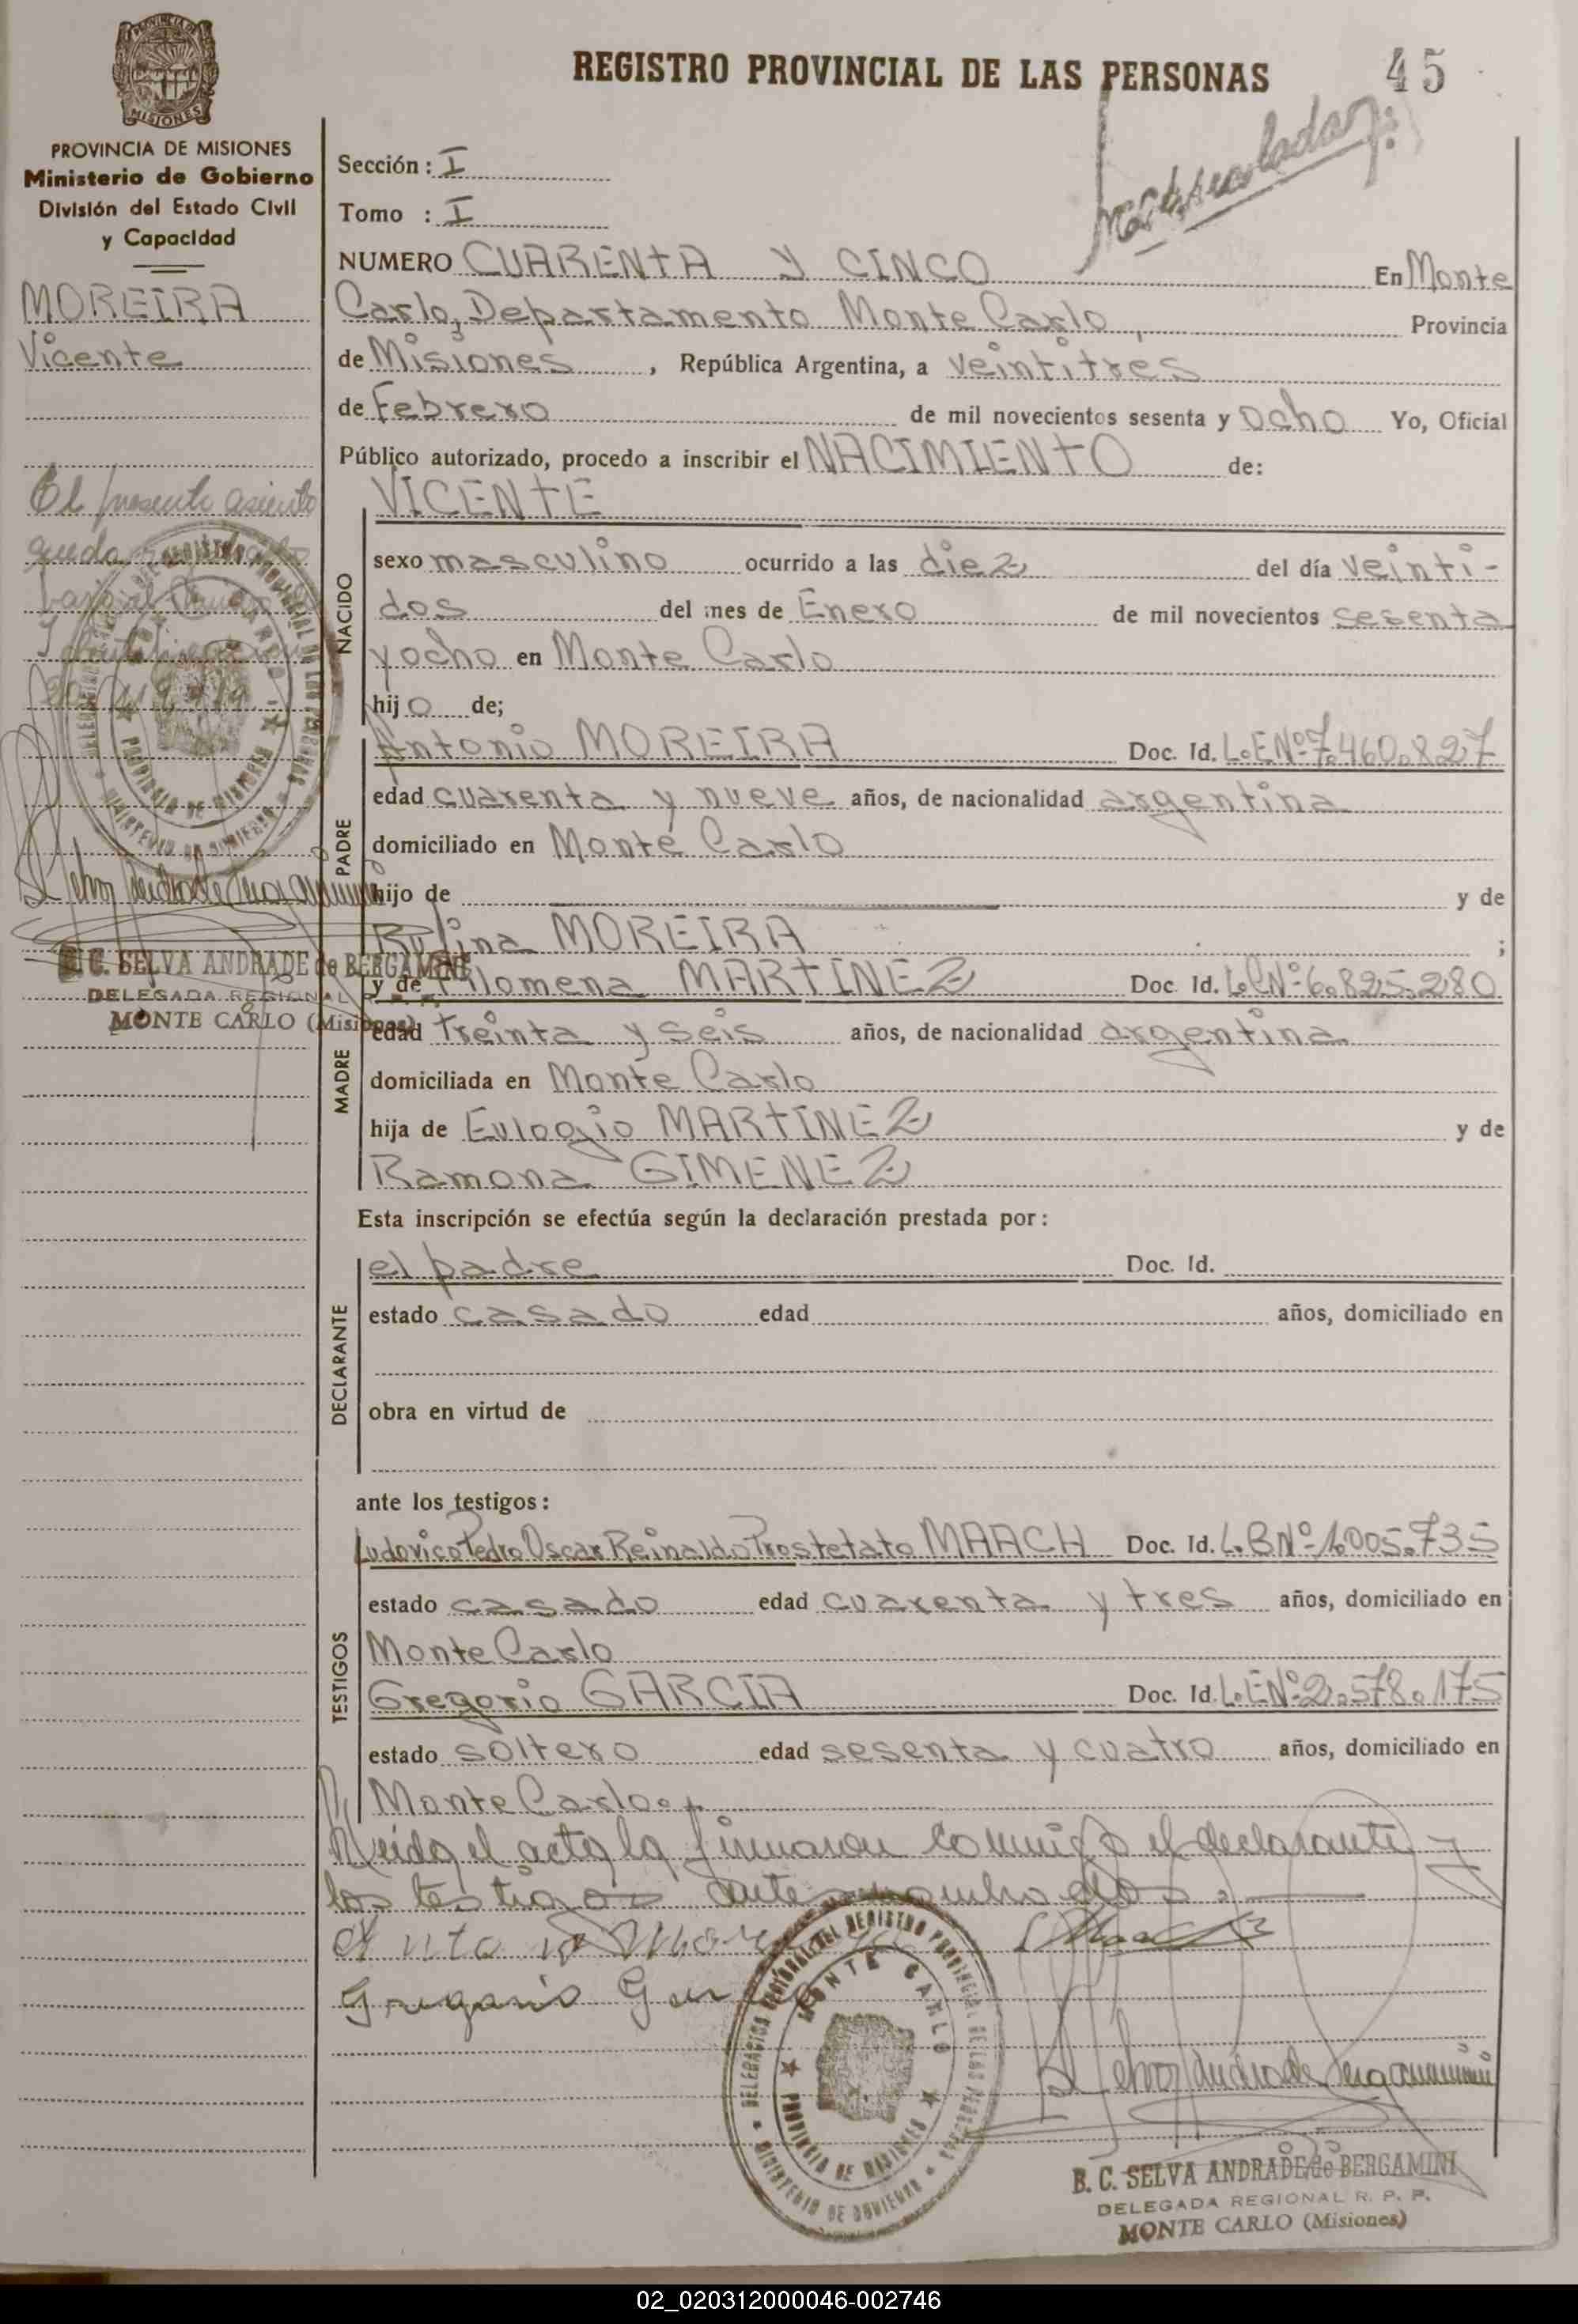 REGISTRO PROVINCIAL DE LAS PERSONAS
45
MISIONES
PROVINCIA DE MISIONES
Ministerio de Gobierno
División del Estado Civil
y Capacidad
MOREIRA
Vicente
El presente asiento
queda
bajo el
20.
B. C. SELVA ANDRADE de BERGAMINI
DELEGADA REGIONAL
MONTE CARLO (Misiones)
Sección: I
Tomo : I
NUMERO CUARENTA Y CINCO En Monte
Carlo, Departamento Monte Carlo, Provincia
de Misiones, República Argentina, a veintitres
de Febrero de mil novecientos sesenta y ocho Yo, Oficial
Público autorizado, procedo a inscribir el NACIMIENTO de:
NACIDO
VICENTE
sexo masculino ocurrido a las diez del día veinti-
dos del mes de Enero de mil novecientos sesenta
y ocho en Monte Carlo
hijo de;
PADRE
Antonio MOREIRA Doc. Id. L.E.Nº 7.460.827
edad cuarenta y nueve años, de nacionalidad argentina
domiciliado en Monte Carlo
hijo de y de
Rufina MOREIRA ;
MADRE
y de Filomena MARTINEZ Doc. Id. L.C.Nº 6.825.280
edad Treinta y seis años, de nacionalidad argentina
domiciliada en Monte Carlo
hija de Eulogio MARTINEZ y de
Ramona GIMENEZ
Esta inscripción se efectúa según la declaración prestada por:
DECLARANTE
el padre Doc. Id.
estado casado edad años, domiciliado en
obra en virtud de
ante los testigos:
TESTIGOS
Ludovico Pedro Oscar Reinaldo Prostetato MAACH Doc. Id. L.E.Nº 1.005.735
estado casado edad cuarenta y tres años, domiciliado en
Monte Carlo
Gregorio GARCIA Doc. Id. L.E.Nº 2.578.175
estado soltero edad sesenta y cuatro años, domiciliado en
Monte Carlo.
Leída el acta la firmaron conmigo el declarante y
los testigos antes nombrados.
Antonio Moreira
Gregorio Garcia
DELEGACION REGIONAL DEL REGISTRO PROVINCIAL DE LAS PERSONAS
MONTE CARLO
PROVINCIA DE MISIONES
MINISTERIO DE GOBIERNO
B. C. SELVA ANDRADE de BERGAMINI
DELEGADA REGIONAL R. P. P.
MONTE CARLO (Misiones)
02_020312000046-002746